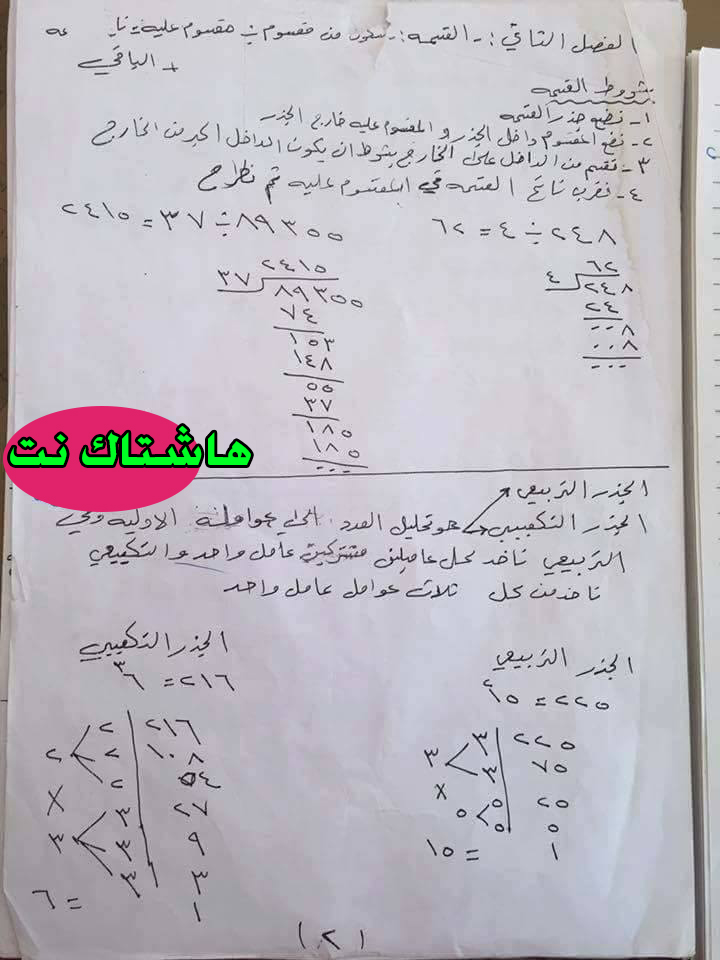 الفصل الثاني :- القسمه :- تتكون من مقسوم ÷ مقسوم عليه = نا
+ الباقي
شروط القسمه
١- نضع جذر القسمه
٢- نضع المقسوم داخل الجذر و المقسوم عليه خارج الجذر
٣- نقسم من الداخل على الخارج بشرط ان يكون الداخل اكبر من الخارج
٤- نضرب ناتج القسمه في المقسوم عليه ثم نطرح
٢٤٨ ÷ ٤ = ٦٢
٨٩٣٥٥ ÷ ٣٧ = ٢٤١٥
٦٢
٤ ٢٤٨
٢٤
٠٠٨
٠٠٨
٠٠٠
٢٤١٥
٣٧ ٨٩٣٥٥
٧٤
١٥٣
١٤٨
٥٥
٣٧
١٨٥
١٨٥
٠٠٠
هاشتاك نت
الجذر التربيعي
الجذر التكعيبي هو تحليل العدد الى عوامله الاوليه وفي
التربيعي ناخذ لكل عاملين مشتركين عامل واحد والتكعيبي
ناخذ من كل ثلاث عوامل عامل واحد
الجذر التربيعي
٢٢٥ = ١٥٢
٢٢٥ ٣
٧٥ ٣ ٣
٢٥ ٥ x
٥ ٥ ٥
١ = ١٥
الجذر التكعيبي
٢١٦ = ٦٣
٢١٦ ٢
١٠٨ ٢ ٢
٥٤ ٢
٢٧ ٣ x
٩ ٣ ٣
٣ ٣
١ = ٦
(٢)